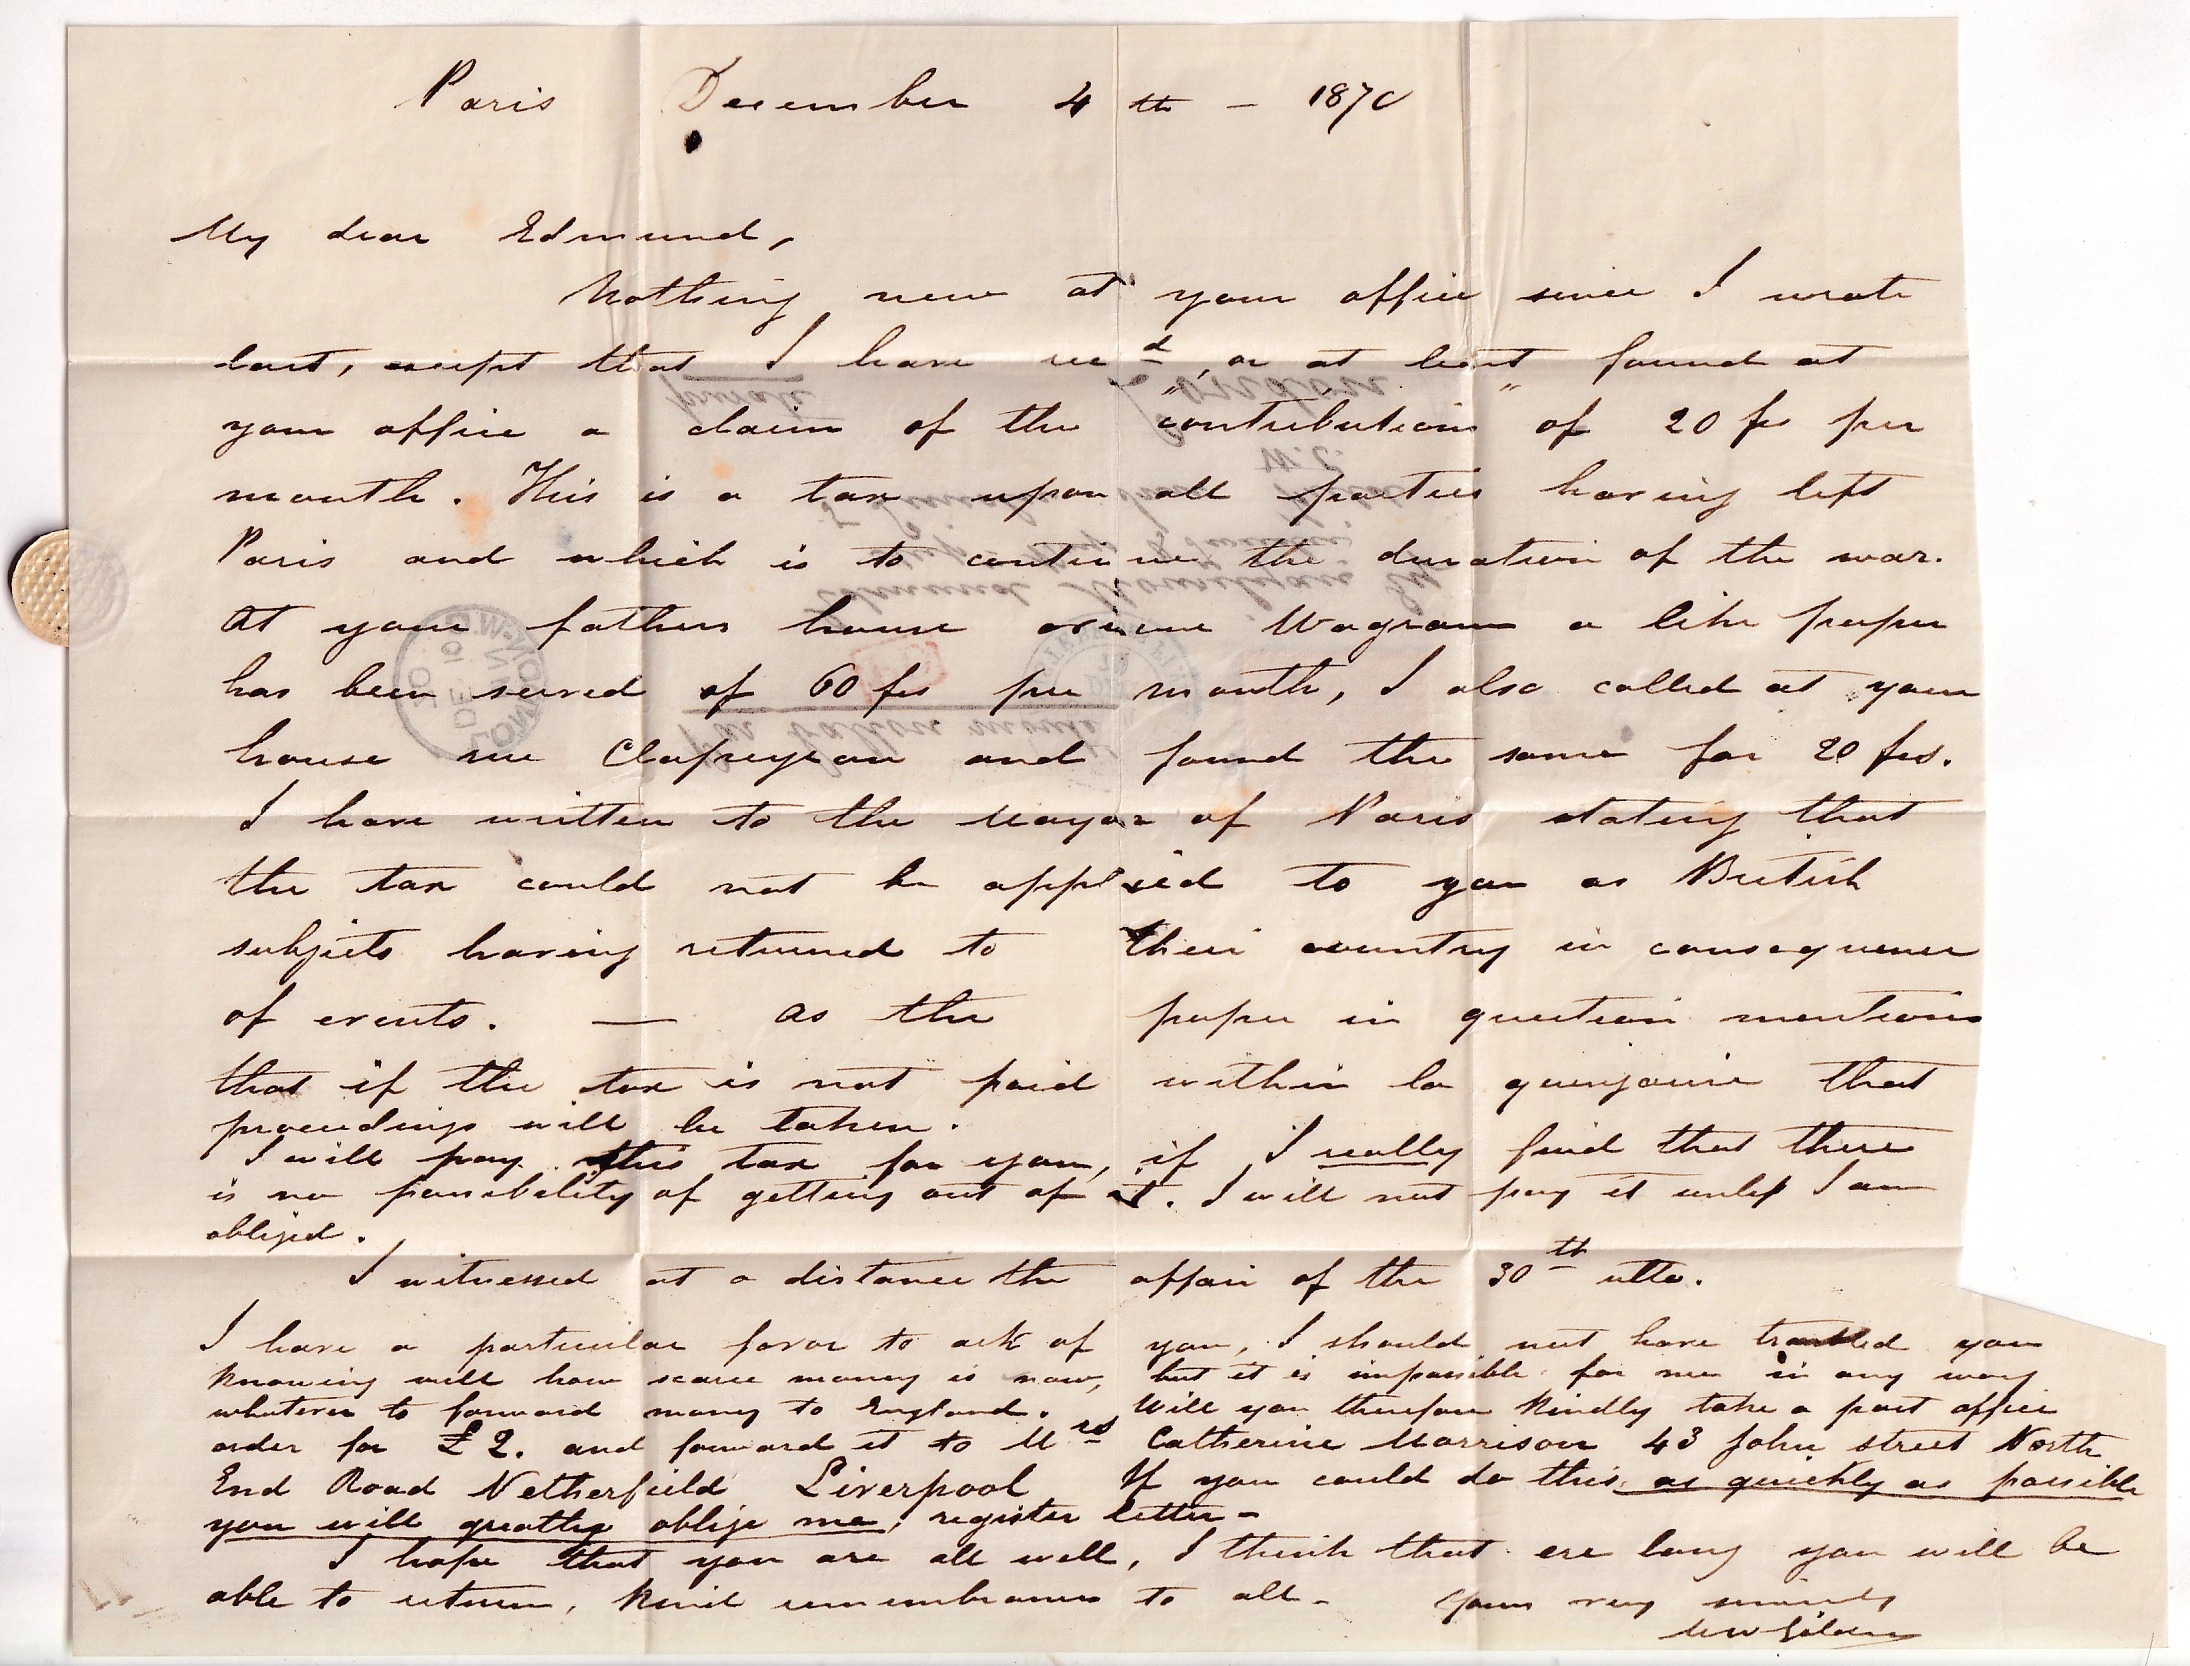 Paris December 4th - 1870
My dear Edmund,
Nothing new at your office since I wrote
last, except that I have recd, or at least found at
your office a claim of the "contribution" of 20 fcs per
month. This is a tax upon all parties having left
Paris and which is to continue the duration of the war.
At your fathers house avenue Wagram a like paper
has been served of 60 fcs per month, I also called at your
house rue Clapeyron and found the same for 20 fcs.
I have written to the Mayor of Paris stating that
the tax could not be applied to you as British
subjects having returned to their country in consequence
of events. — As the paper in question mentions
that if the tax is not paid within la quinzaine that
proceedings will be taken.
I will pay this tax for you, if I really find that there
is no possibility of getting out of it. I will not pay it unless I am
obliged.
I witnessed at a distance the affair of the 30th ulto.
I have a particular favor to ask of you, I should not have troubled you
knowing well how scarce money is now, but it is impossible for me in any way
whatever to forward money to England. Will you therefore kindly take a post office
order for £2. and forward it to Mrs Catherine Morrison 43 John street North
End Road Netherfield Liverpool If you could do this, as quickly as possible
you will greatly oblige me, register letter -
I hope that you are all well, I think that ere long you will be
able to return, kind remembrances to all - Yours very sincerely
LONDON
Par ballon monté
London
W.C.
private
PD